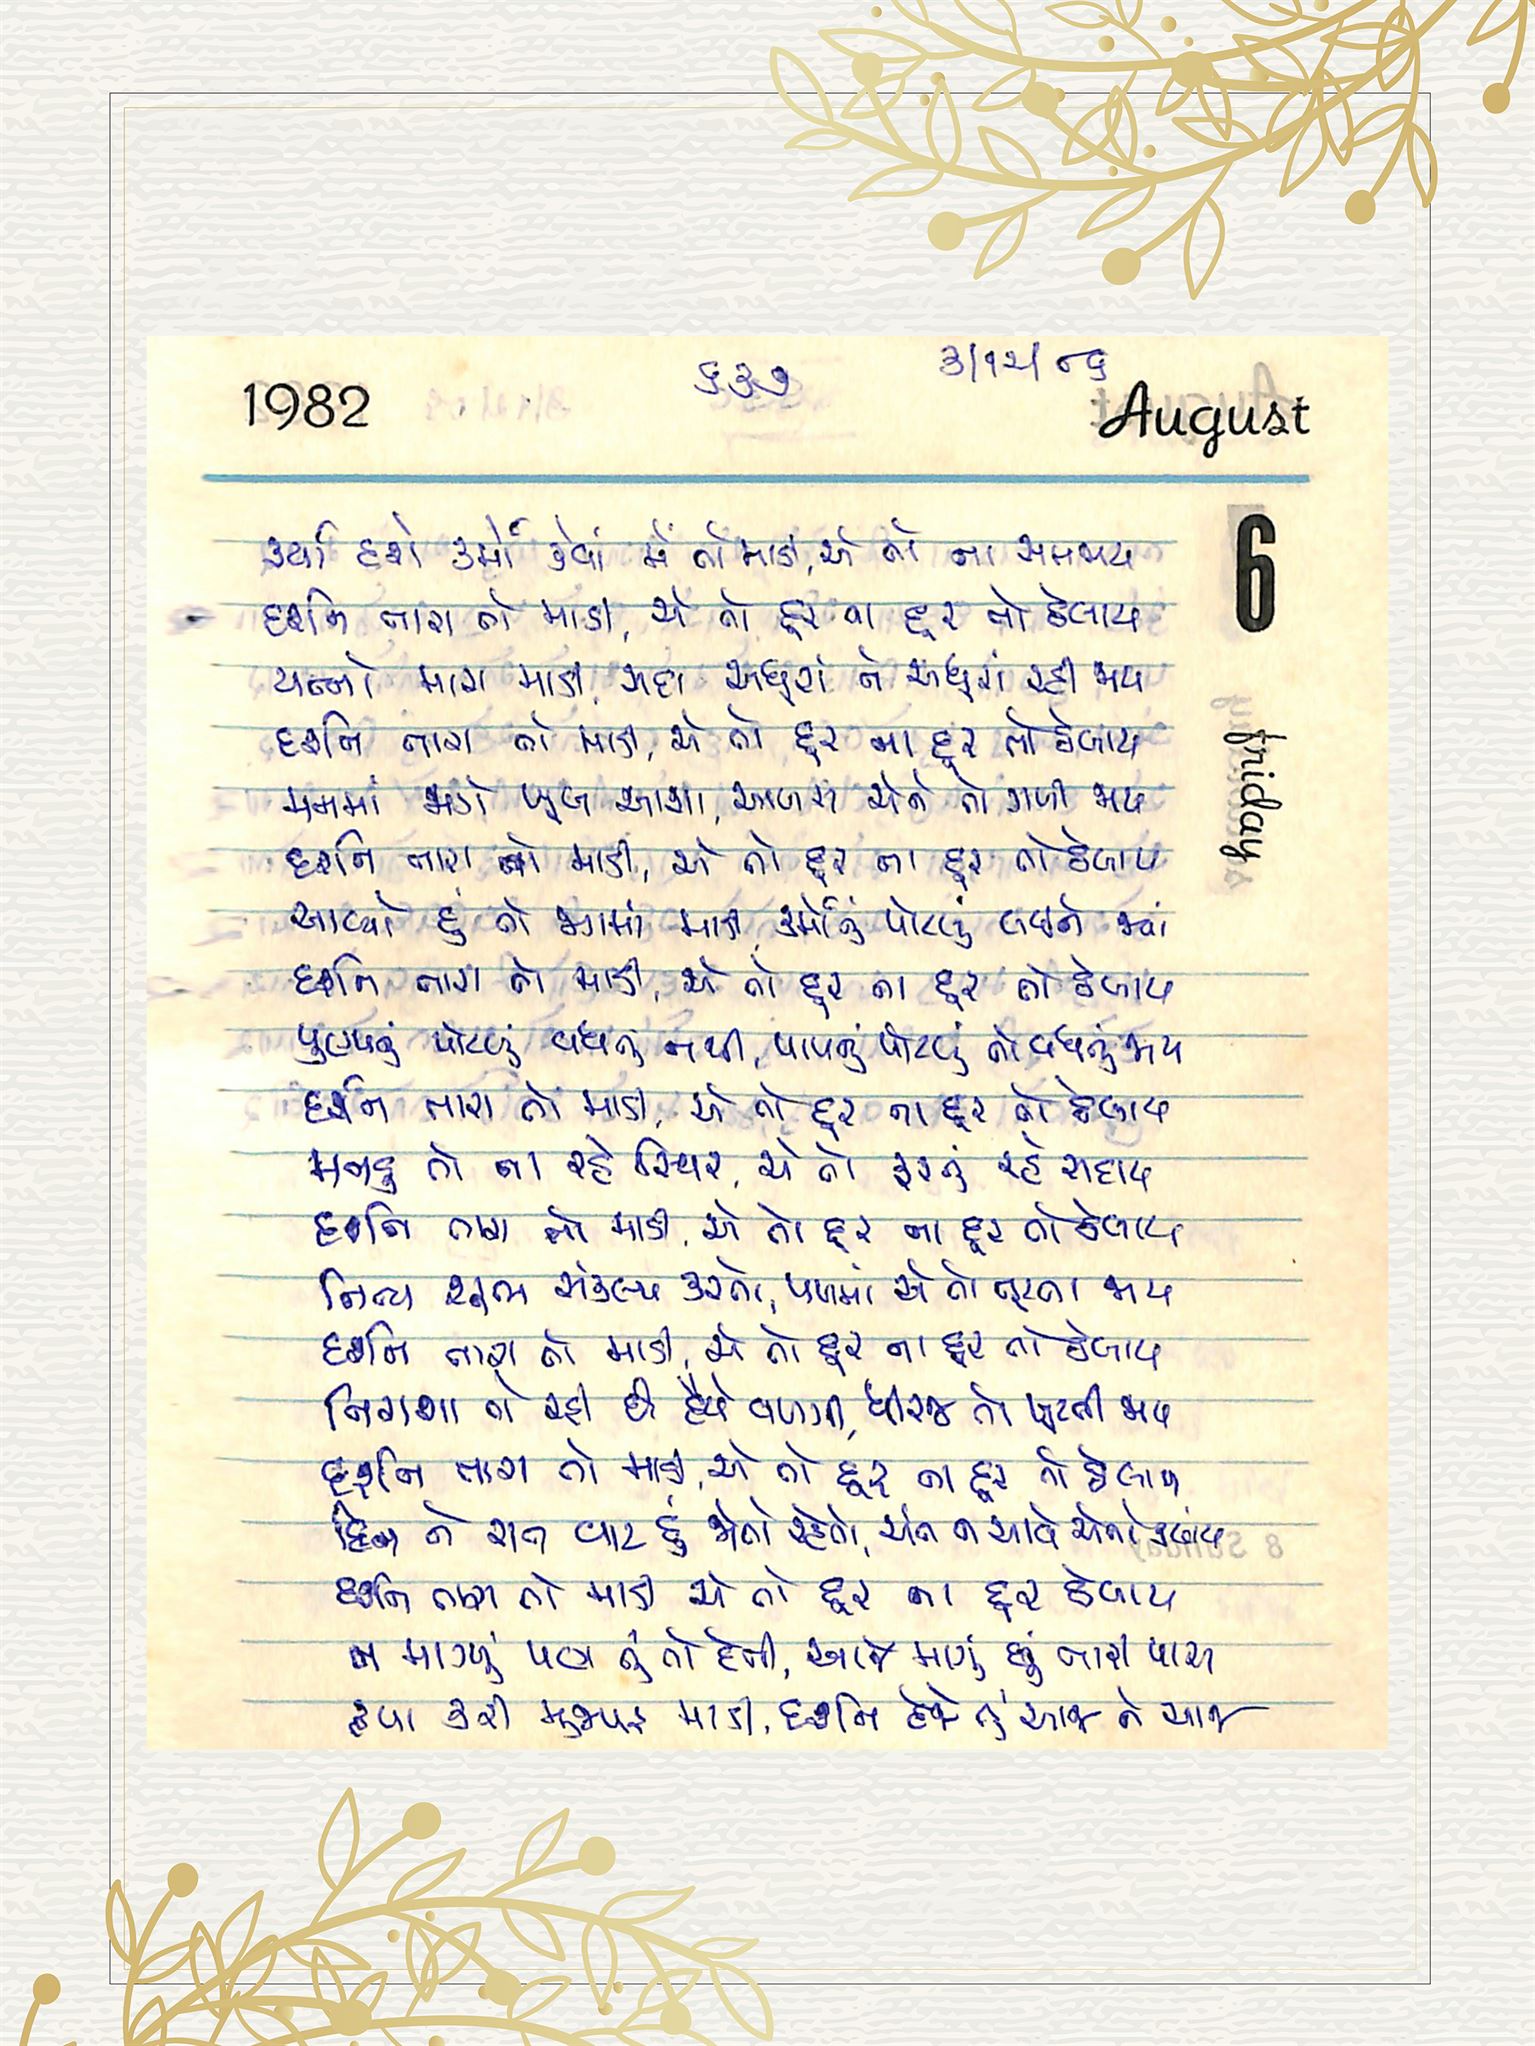 ૬૩૭
૩/૧૨/૮૬
1982
August
6
friday
કર્યા હશે કર્મો કેવાં મેં તો માડી, એ તો ના સમજાય
દર્શન તારા તો માડી, એ તો દૂર ના દૂર તો ઠેલાય
યત્નો મારા માડી, સદા અધૂરાં ને અધૂરાં રહી જાય
દર્શન તારા તો માડી, એ તો દૂર ના દૂર તો ઠેલાય
મનમાં જાગે ખૂબ આશા, આળસ એને તો ગળી જાય
દર્શન તારા તો માડી, એ તો દૂર ના દૂર તો ઠેલાય
આવ્યો છું તો જગમાં માડી, કર્મોનું પોટલું લઇને જ્યાં
દર્શન તારા તો માડી, એ તો દૂર ના દૂર તો ઠેલાય
પુણ્યનું પોટલું વધતું નથી, પાપનું પોટલું તો વધતું જાય
દર્શન તારા તો માડી, એ તો દૂર ના દૂર તો ઠેલાય
મનડું તો ના રહે સ્થિર, એ તો ફરતું રહે સદાય
દર્શન તારા તો માડી, એ તો દૂર ના દૂર તો ઠેલાય
નિત્ય શુભ સંકલ્પ કરતો, પળમાં એ તો તૂટતા જાય
દર્શન તારા તો માડી, એ તો દૂર ના દૂર તો ઠેલાય
નિરાશા તો રહી છે હૈયે વળગી, ધીરજ તો ખૂટતી જાય
દર્શન તારા તો માડી, એ તો દૂર ના દૂર તો ઠેલાય
દિન ને રાત વાટ હું જોતો રહેતો, અંત ન આવે એનો ક્યાંય
દર્શન તારા તો માડી એ તો દૂર ના દૂર ઠેલાય
ન માગ્યું પણ તું તો દેતી, આજે માગું છું તારી પાસ
કૃપા કરી મુજપર માડી, દર્શન દેજે તું આજ ને આજ